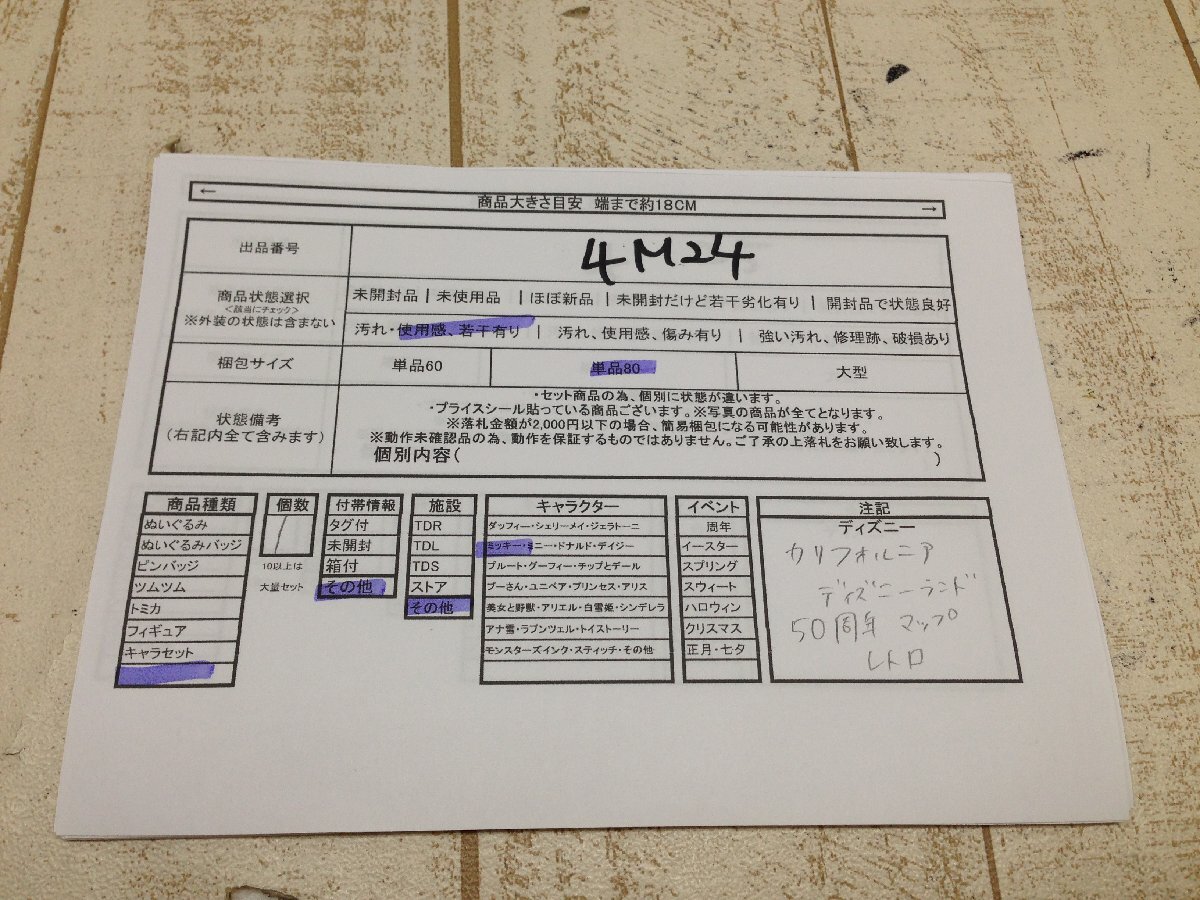 ← 商品大きさ目安 端まで約18CM →
出品番号 4M24
商品状態選択
<該当にチェック>
※外装の状態は含まない
未開封品 | 未使用品 | ほぼ新品 | 未開封だけど若干劣化有り | 開封品で状態良好
汚れ・使用感、若干有り | 汚れ、使用感、傷み有り | 強い汚れ、修理跡、破損あり
梱包サイズ 単品60 単品80 大型
状態備考
(右記内全て含みます)
・セット商品の為、個別に状態が違います。
・プライスシール貼っている商品ございます。※写真の商品が全てとなります。
※落札金額が2,000円以下の場合、簡易梱包になる可能性があります。
※動作未確認品の為、動作を保証するものではありません。ご了承の上落札をお願い致します。
個別内容( )
商品種類
ぬいぐるみ
ぬいぐるみバッジ
ピンバッジ
ツムツム
トミカ
フィギュア
キャラセット
個数
/
10以上は
大量セット
付帯情報
タグ付
未開封
箱付
その他
施設
TDR
TDL
TDS
ストア
その他
キャラクター
ダッフィー・シェリーメイ・ジェラトーニ
ミッキー・ミニー・ドナルド・デイジー
プルート・グーフィー・チップとデール
プーさん・ユニベア・プリンセス・アリス
美女と野獣・アリエル・白雪姫・シンデレラ
アナ雪・ラプンツェル・トイストーリー
モンスターズインク・スティッチ・その他
イベント
周年
イースター
スプリング
スウィート
ハロウィン
クリスマス
正月・七夕
注記
ディズニー
カリフォルニア
ディズニーランド
50周年 マップ
レトロ